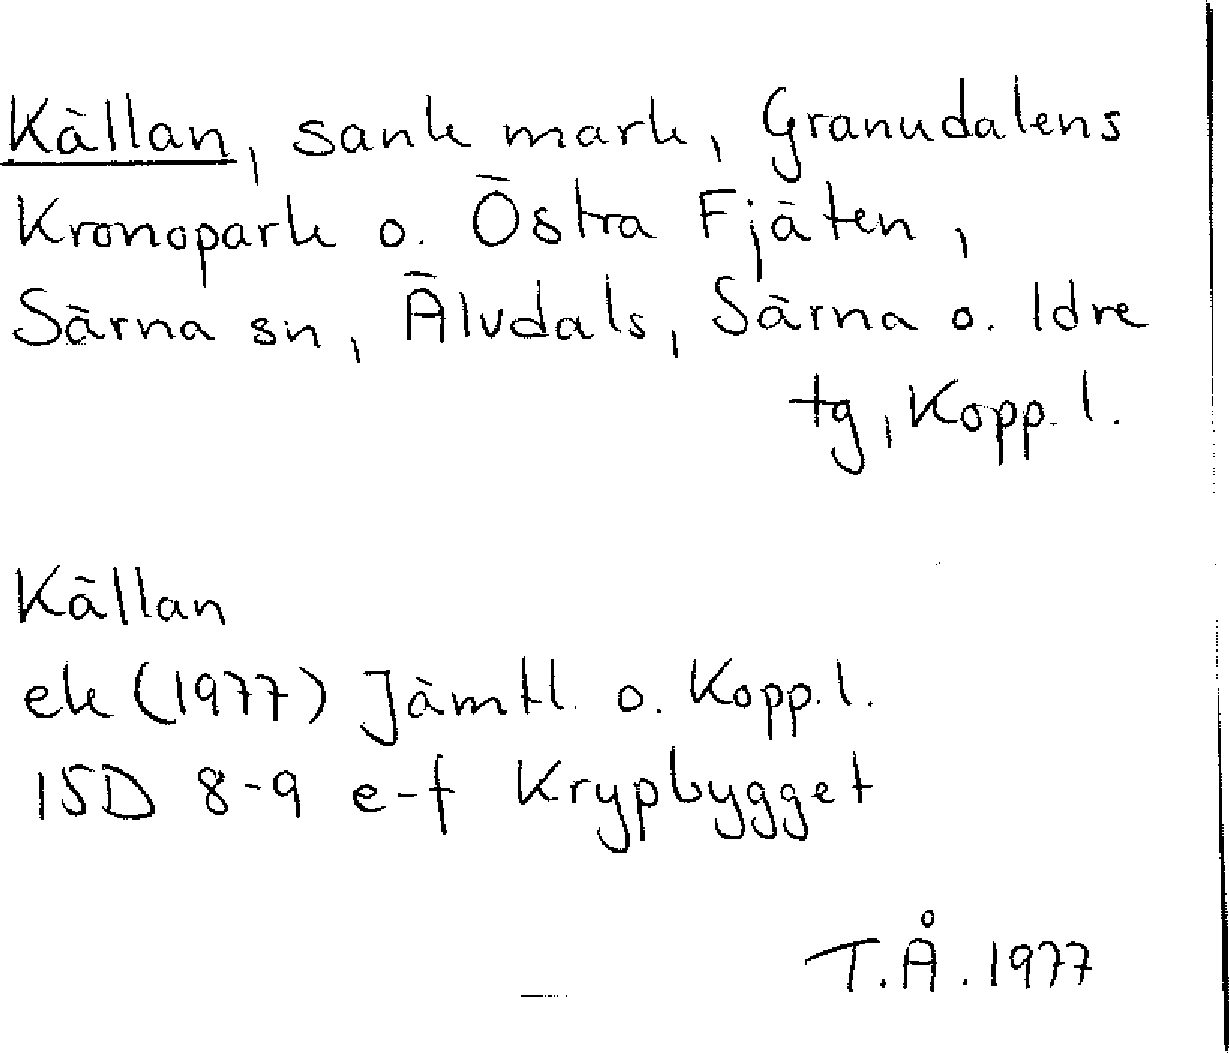 Källan, sank mark, Granudalens
Kronopark o. Östra Fjäten,
Särna sn, Älvdals, Särna o. Idre
tg, Kopp. l.
Källan
ek (1977) Jämtl. o. Kopp. l.
15D 8-9 e-f Krypbygget
T.Å. 1977